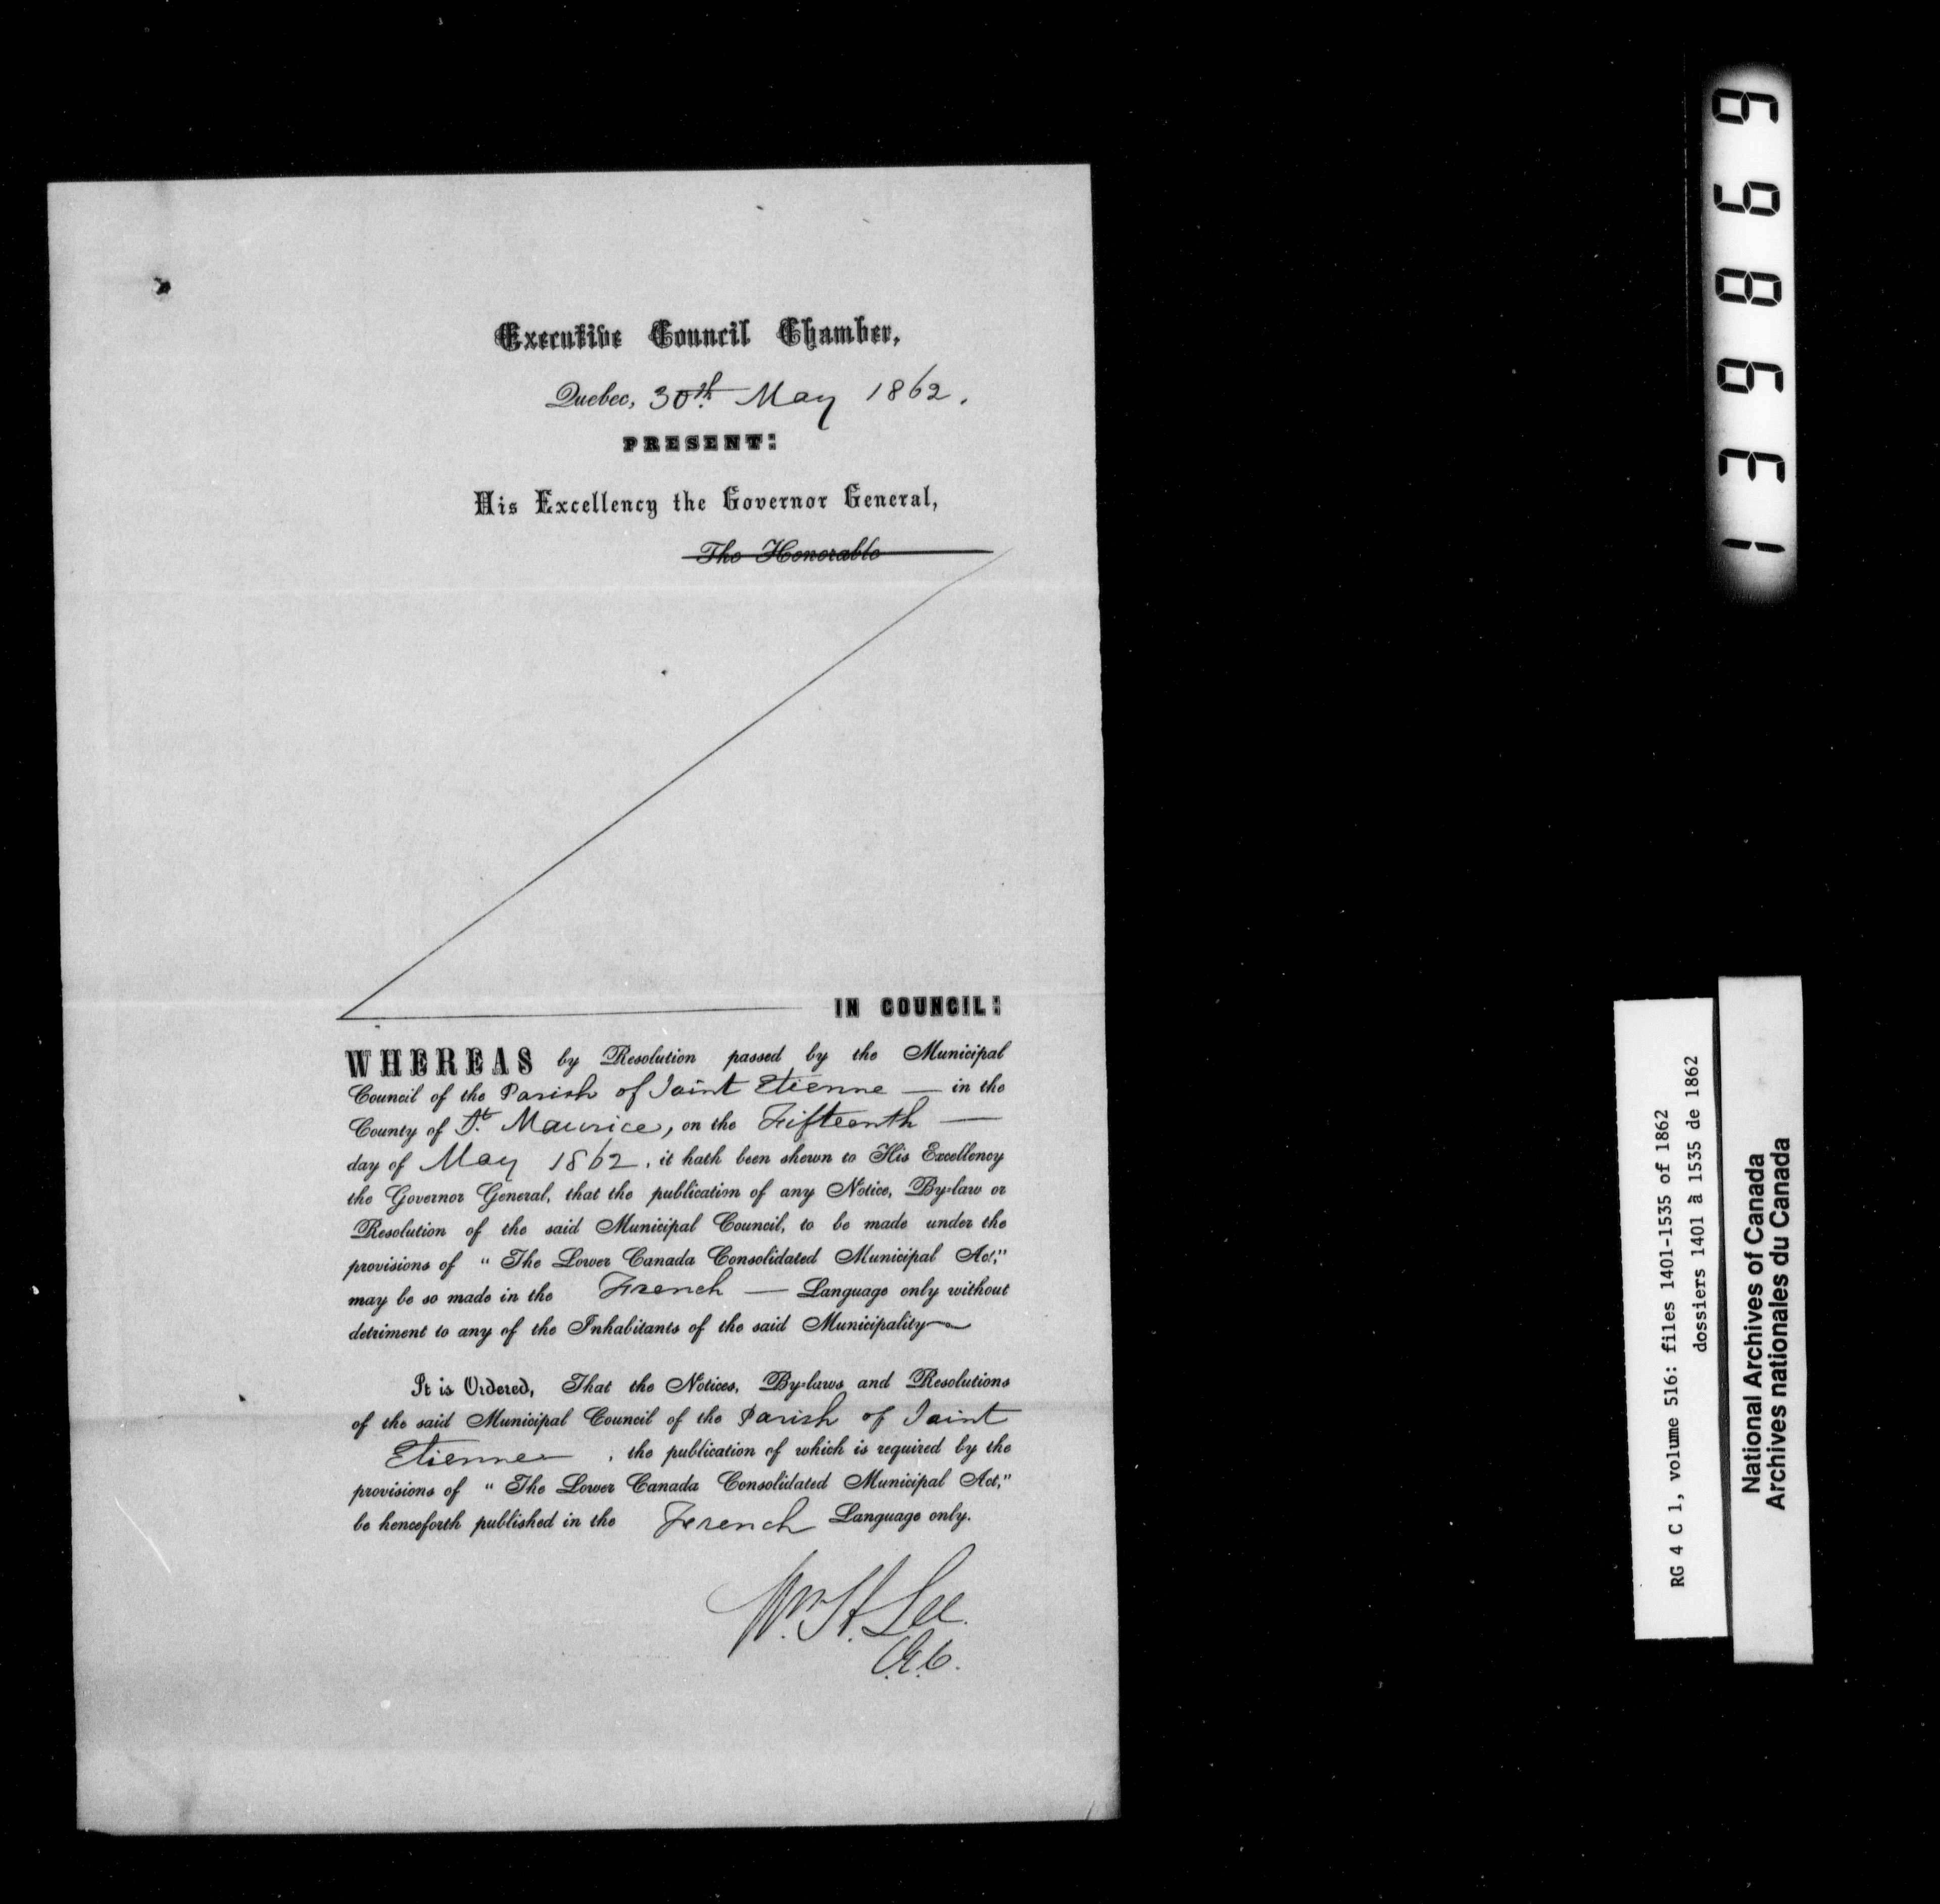 Executive Council Chamber,
Quebec, 30th May 1862.
PRESENT:
His Excellency the Governor General,
The Honorable
IN COUNCIL:
WHEREAS by Resolution passed by the Municipal
Council of the Parish of Saint Etienne — in the
County of St. Maurice, on the Fifteenth —
day of May 1862, it hath been shewn to His Excellency
the Governor General, that the publication of any Notice, By-law or
Resolution of the said Municipal Council, to be made under the
provisions of "The Lower Canada Consolidated Municipal Act,"
may be so made in the French — Language only without
detriment to any of the Inhabitants of the said Municipality
It is Ordered, That the Notices, By-laws and Resolutions
of the said Municipal Council of the Parish of Saint
Etienne, the publication of which is required by the
provisions of "The Lower Canada Consolidated Municipal Act,"
be henceforth published in the French Language only.
Wm. H. Lee.
139869
RG 4 C 1, volume 516: files 1401-1535 of 1862
dossiers 1401 à 1535 de 1862
National Archives of Canada
Archives nationales du Canada